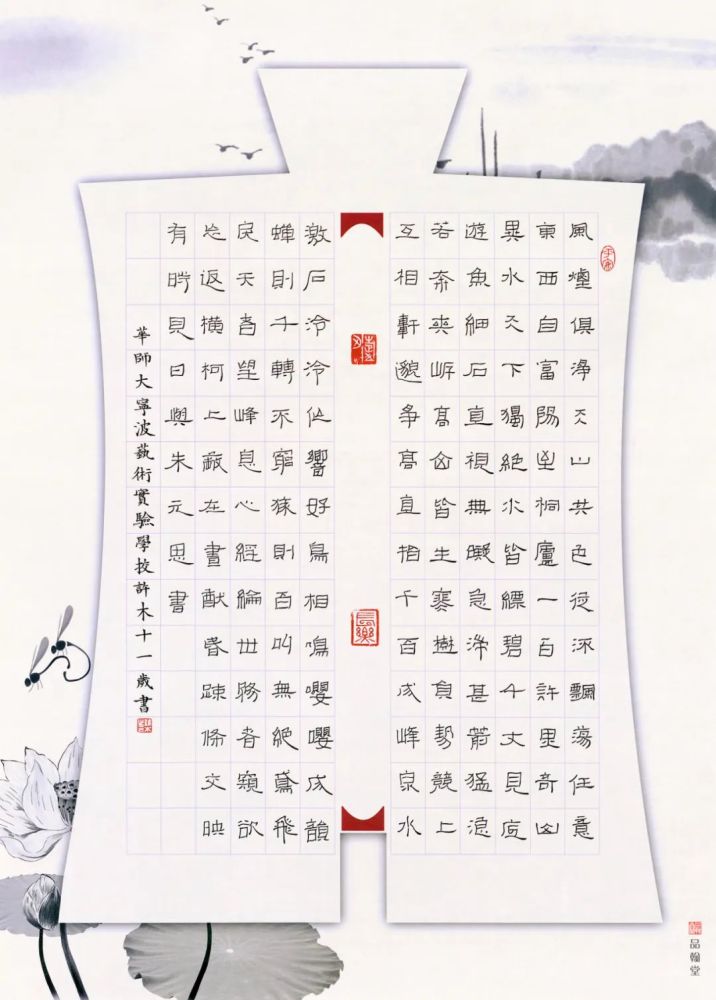 風煙俱淨天山共色從流飄蕩任意
東西自富陽至桐廬一百許里奇山
異水天下獨絕水皆縹碧千丈見底
遊魚細石直視無礙急湍甚箭猛浪
若奔夾岸高山皆生寒樹負勢競上
互相軒邈爭高直指千百成峰泉水
激石泠泠作響好鳥相鳴嚶嚶成韻
蟬則千轉不窮猿則百叫無絕鳶飛
戾天者望峰息心經綸世務者窺欲
忘返橫柯上蔽在晝猷昏疎條交映
有時見日與朱元思書
華師大寧波藝術實驗學校許木十一歲書
長樂
品翰堂